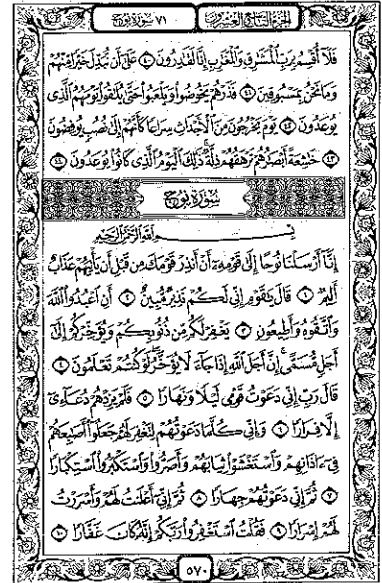 الجزء التاسع والعشرون
٧١ سورة نوح
فَلَآ أُقْسِمُ بِرَبِّ ٱلْمَشَٰرِقِ وَٱلْمَغَٰرِبِ إِنَّا لَقَٰدِرُونَ ٤٠ عَلَىٰٓ أَن نُّبَدِّلَ خَيْرًا مِّنْهُمْ
وَمَا نَحْنُ بِمَسْبُوقِينَ ٤١ فَذَرْهُمْ يَخُوضُوا۟ وَيَلْعَبُوا۟ حَتَّىٰ يُلَٰقُوا۟ يَوْمَهُمُ ٱلَّذِى
يُوعَدُونَ ٤٢ يَوْمَ يَخْرُجُونَ مِنَ ٱلْأَجْدَاثِ سِرَاعًا كَأَنَّهُمْ إِلَىٰ نُصُبٍ يُوفِضُونَ
٤٣ خَٰشِعَةً أَبْصَٰرُهُمْ تَرْهَقُهُمْ ذِلَّةٌ ذَٰلِكَ ٱلْيَوْمُ ٱلَّذِى كَانُوا۟ يُوعَدُونَ ٤٤
سُورَةُ نُوحٍ
بِسْمِ ٱللَّهِ ٱلرَّحْمَٰنِ ٱلرَّحِيمِ
إِنَّآ أَرْسَلْنَا نُوحًا إِلَىٰ قَوْمِهِۦٓ أَنْ أَنذِرْ قَوْمَكَ مِن قَبْلِ أَن يَأْتِيَهُمْ عَذَابٌ
أَلِيمٌ ١ قَالَ يَٰقَوْمِ إِنِّى لَكُمْ نَذِيرٌ مُّبِينٌ ٢ أَنِ ٱعْبُدُوا۟ ٱللَّهَ
وَٱتَّقُوهُ وَأَطِيعُونِ ٣ يَغْفِرْ لَكُم مِّن ذُنُوبِكُمْ وَيُؤَخِّرْكُمْ إِلَىٰٓ
أَجَلٍ مُّسَمًّى إِنَّ أَجَلَ ٱللَّهِ إِذَا جَآءَ لَا يُؤَخَّرُ لَوْ كُنتُمْ تَعْلَمُونَ ٤
قَالَ رَبِّ إِنِّى دَعَوْتُ قَوْمِى لَيْلًا وَنَهَارًا ٥ فَلَمْ يَزِدْهُمْ دُعَآءِىٓ
إِلَّا فِرَارًا ٦ وَإِنِّى كُلَّمَا دَعَوْتُهُمْ لِتَغْفِرَ لَهُمْ جَعَلُوٓا۟ أَصَٰبِعَهُمْ
فِىٓ ءَاذَانِهِمْ وَٱسْتَغْشَوْا۟ ثِيَابَهُمْ وَأَصَرُّوا۟ وَٱسْتَكْبَرُوا۟ ٱسْتِكْبَارًا
٧ ثُمَّ إِنِّى دَعَوْتُهُمْ جِهَارًا ٨ ثُمَّ إِنِّىٓ أَعْلَنتُ لَهُمْ وَأَسْرَرْتُ
لَهُمْ إِسْرَارًا ٩ فَقُلْتُ ٱسْتَغْفِرُوا۟ رَبَّكُمْ إِنَّهُۥ كَانَ غَفَّارًا ١٠
٥٧٠